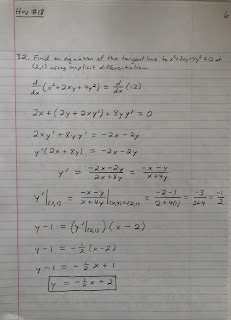 HW #18
6
32. Find an equation of the tangent line to x² + 2xy + 4y² = 12 at
(2,1) using implicit differentiation.
d/dx (x² + 2xy + 4y²) = d/dx (12)
2x + (2y + 2xy') + 8yy' = 0
2xy' + 8yy' = -2x - 2y
y'(2x + 8y) = -2x - 2y
y' = (-2x - 2y)/(2x + 8y) = (-x - y)/(x + 4y)
y'|(2,1) = (-x - y)/(x + 4y)|(x,y)=(2,1) = (-2 - 1)/(2 + 4(1)) = -3/(2+4) = -1/2
y - 1 = (y'|(2,1))(x - 2)
y - 1 = -1/2 (x - 2)
y - 1 = -1/2 x + 1
y = -1/2 x + 2